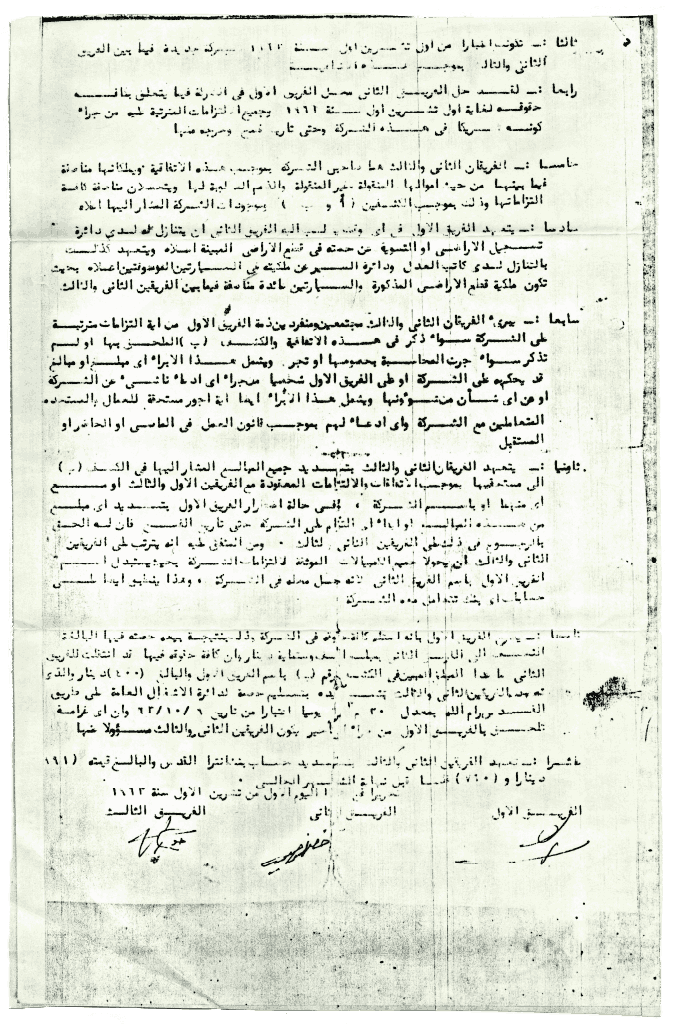 ثالثا :- تكونت اعتبارا من اول تشرين اول سنة ١٩٦٢ شركة جديدة فيما بين الفريق
الثاني والثالث بموجب هذه الاتفاقية
رابعا :- لقد حل الفريق الثاني محل الفريق الاول في الشركة فيما يتعلق بكافة
حقوقه لغاية اول تشرين اول سنة ١٩٦٢ وجميع التزامات المترتبة عليه من جراء
كونه شريكا في هذه الشركة وحتى تاريخ
خامسا :- الفريقان الثاني والثالث هما صاحبي الشركة بموجب هذه الاتفاقية ويملكانها مناصفة
فيما بينهما من حيث اموالها المنقولة وغير المنقولة والذمم لها ويتحملان مناصفة كافة
التزاماتها وذلك بموجب الكشفين ( أ و ب ) بموجودات الشركة المشار اليها اعلاه
سادسا :- يتعهد الفريق الاول في اي وقت يطلب اليه الفريق الثاني ان يتنازل له لدى دائرة
تسجيل الاراضي او التسوية عن حصته في قطع الاراضي المبينة اعلاه ويتعهد كذلك
بالتنازل لدى كاتب العدل ودائرة السير عن ملكيته في السيارتين الموصوفتين اعلاه بحيث
تكون ملكية قطع الاراضي المذكورة والسيارتين عائدة مناصفة فيما بين الفريقين الثاني والثالث
سابعا :- يبرىء الفريقان الثاني والثالث مجتمعين ومنفردين ذمة الفريق الاول من اية التزامات مترتبة
على الشركة سواء ذكر في هذه الاتفاقية والكشف ( ب ) الملحق بها او لم
تذكر سواء جرت المحاسبة بخصوصها او تجر ويشمل هذا الابراء اي مبلغ او مبالغ
قد يحكم على الشركة او على الفريق الاول شخصيا من جراء اي ادعاء ناشىء عن الشركة
او عن اي شأن من شؤونها ويشمل هذا الابراء ايضا اية اجور مستحقة للعمال والمستخدمين
المتعاملين مع الشركة واي ادعاء لهم بموجب قانون العمل في الماضي او الحاضر او
المستقبل
ثامنا :- يتعهد الفريقان الثاني والثالث بتسديد جميع المبالغ المشار اليها في الكشف ( ب )
الى مستحقيها بموجب الاتفاقات والالتزامات المعقودة مع الفريقين الاول والثالث او مع
أي منهما او باسم الشركة ، وفي حالة اضطرار الفريق الاول بتسديد اي مبلغ
من هذه المبالغ او ايفاء اي التزام على الشركة حتى تاريخ الفسخ فان له الحق
بالرجوع في ذلك على الفريقين الثاني والثالث . ومن المتفق عليه انه يترتب على الفريقين
الثاني والثالث ان يحولا جميع الكمبيالات الموثقة لالتزامات الشركة بحيث يستبدل اسم
الفريق الاول باسم الفريق الثاني لانه حل محله في الشركة ، وهذا ينطبق ايضا على
حسابات اي بنك تتعامل معه الشركة
تاسعا :- الفريق الاول بانه استلم كافة حقوقه في الشركة وذلك بنتيجة بيعه حصته فيها البالغة
النصف الى الفريق الثاني بمبلغ الف وستماية دينار وان كافة حقوقه فيها قد انتقلت للفريق
الثاني ما عدا المبلغ المبين في الكشف رقم (ب) باسم الفريق الاول والبالغ (٤٠٠) دينار والذي
تعهد الفريقين الثاني والثالث بتسديده بتسليم حصمة لدائرة الاشغال العامة على طريق
القدس رام الله بمعدل ٣٠ م٣ يوميا اعتبارا من تاريخ ٦/١٠/٦٢ وان اي غرامة
تلحق بالفريق الاول من جراء اي تأخير يكون الفريقين الثاني والثالث مسؤولا عنها
عاشرا :- تعهد الفريقين الثاني والثالث بتسديد حساب بنك انترا القدس والبالغ قيمته (١٩١)
دينارا و (٧٤٠) فلسا قبل نهاية الشهر الحالي .
تحريرا في هذا اليوم الاول من تشرين الاول سنة ١٩٦٢
الفريق الاول الفريق الثاني الفريق الثالث